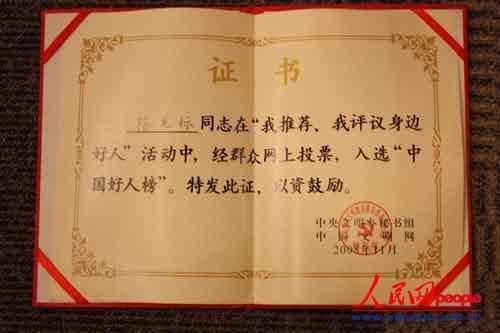 证书
同志在“我推荐、我评议身边
好人”活动中，经群众网上投票，入选“中
国好人榜”。特发此证，以资鼓励。
中央文明办秘书组
中国文明网
2008年11月
人民网
people